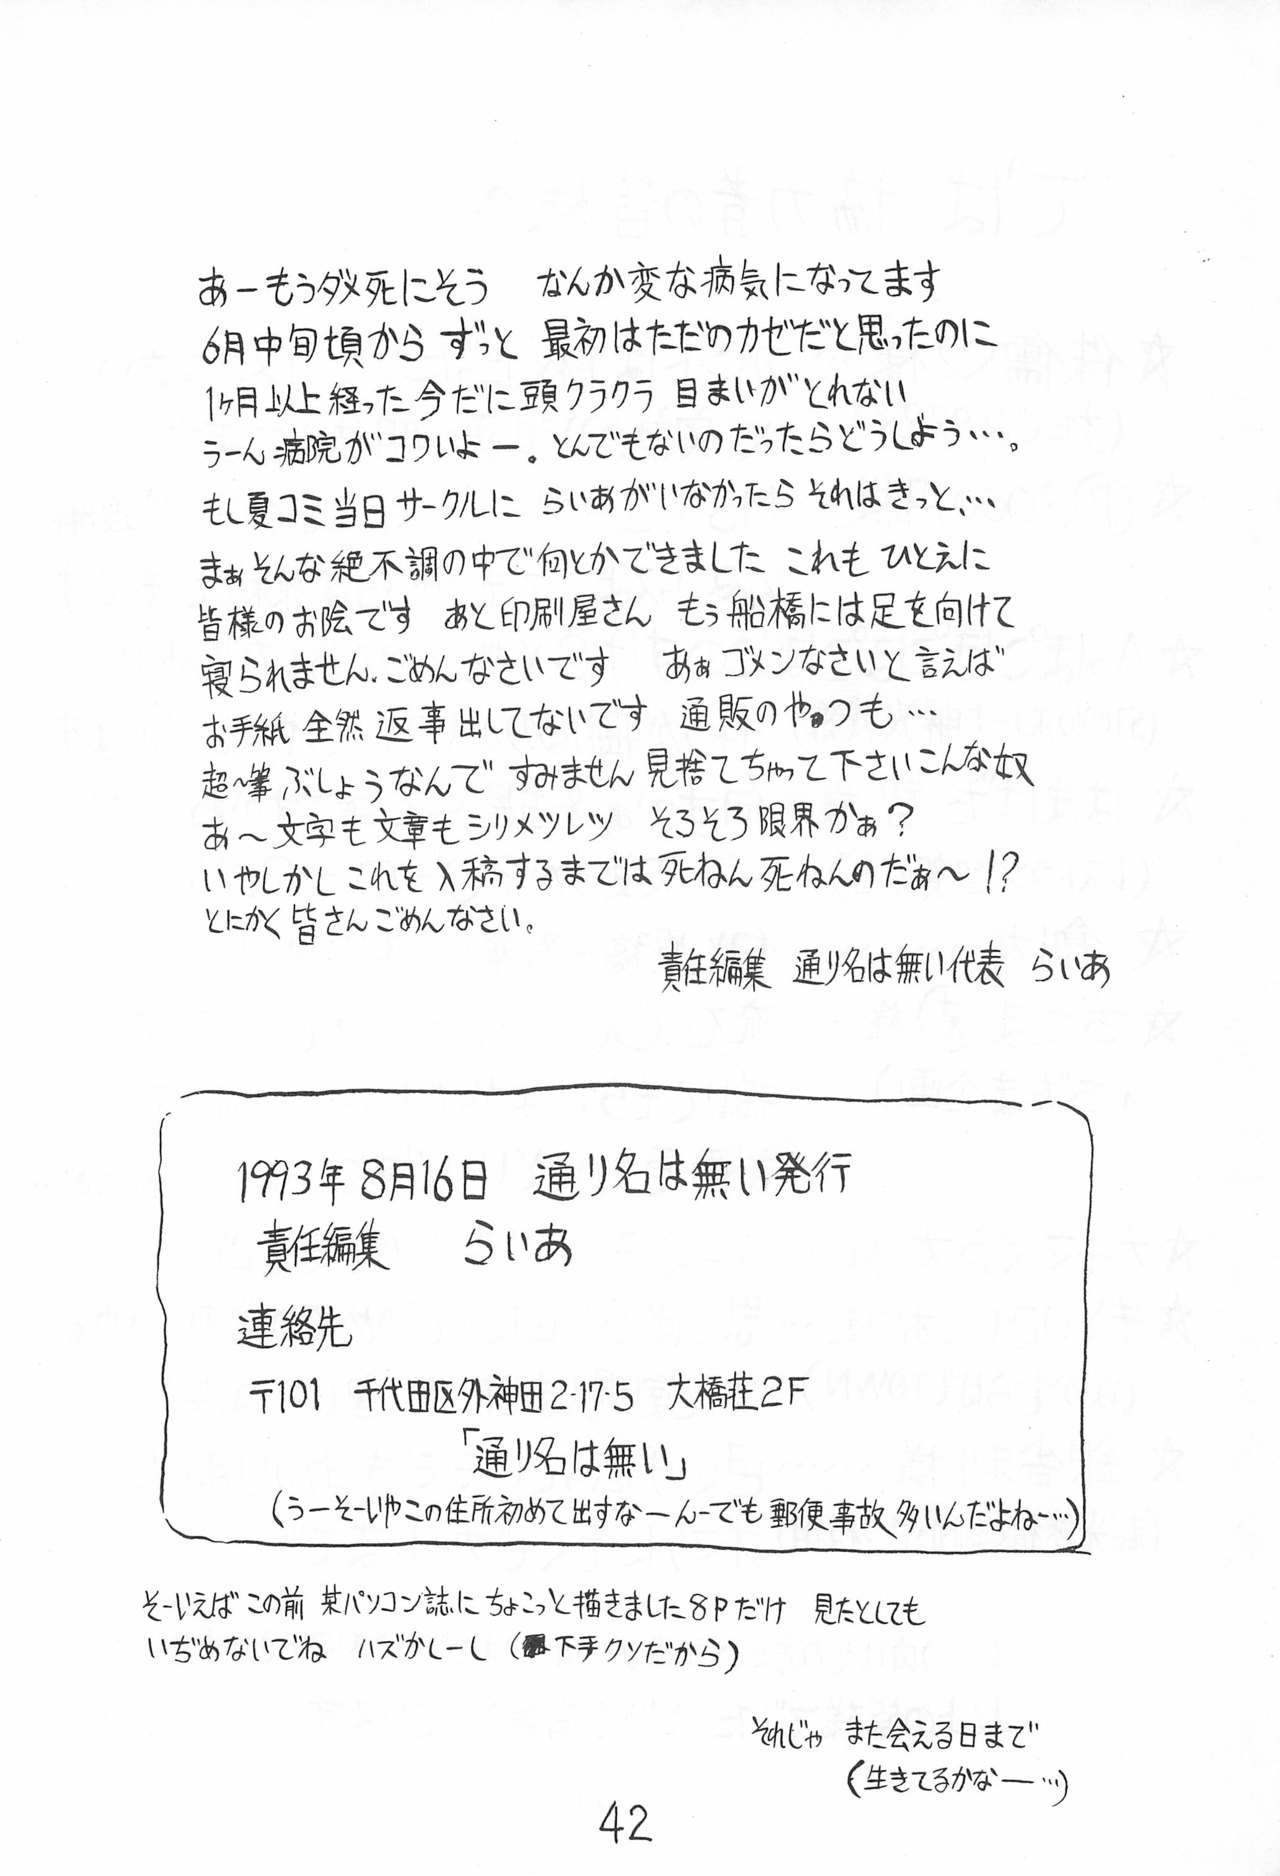 あーもうダメ死にそう　なんか変な病気になってます
6月中旬頃から ずっと 最初はただのカゼだと思ったのに
1ヶ月以上経った今だに頭クラクラ 目まいがとれない
うーん病院がコワいよー。とんでもないのだったらどうしよう…。
もし夏コミ当日サークルに らいあがいなかったら それはきっと、…
まぁそんな絶不調の中で何とかできました これも ひとえに
皆様のお陰です　あと印刷屋さん　もう船橋には足を向けて
寝られません、ごめんなさいです　あぁゴメンなさいと言えば
お手紙全然返事出してないです 通販のやつも…
超〜筆ぶしょうなんで すみません見捨てちゃって下さいこんな奴
あ〜文字も文章もシリメツレツ　そろそろ限界かぁ?
いやしかしこれを入稿するまでは死ねん死ねんのだぁ〜!?
とにかく皆さんごめんなさい。
責任編集 通り名は無い代表 らいあ
1993年8月16日　通り名は無い発行
責任編集　らいあ
連絡先
〒101　千代田区外神田2-17-5　大橋荘2F
「通り名は無い」
(うーそーいやこの住所初めて出すなーんーでも郵便事故多いんだよねー…)
そーいえばこの前 某パソコン誌にちょこっと描きました8Pだけ　見たとしても
いぢめないでね　ハズかしーし (下手クソだから)
それじゃ　また会える日まで
(生きてるかなー…)
42